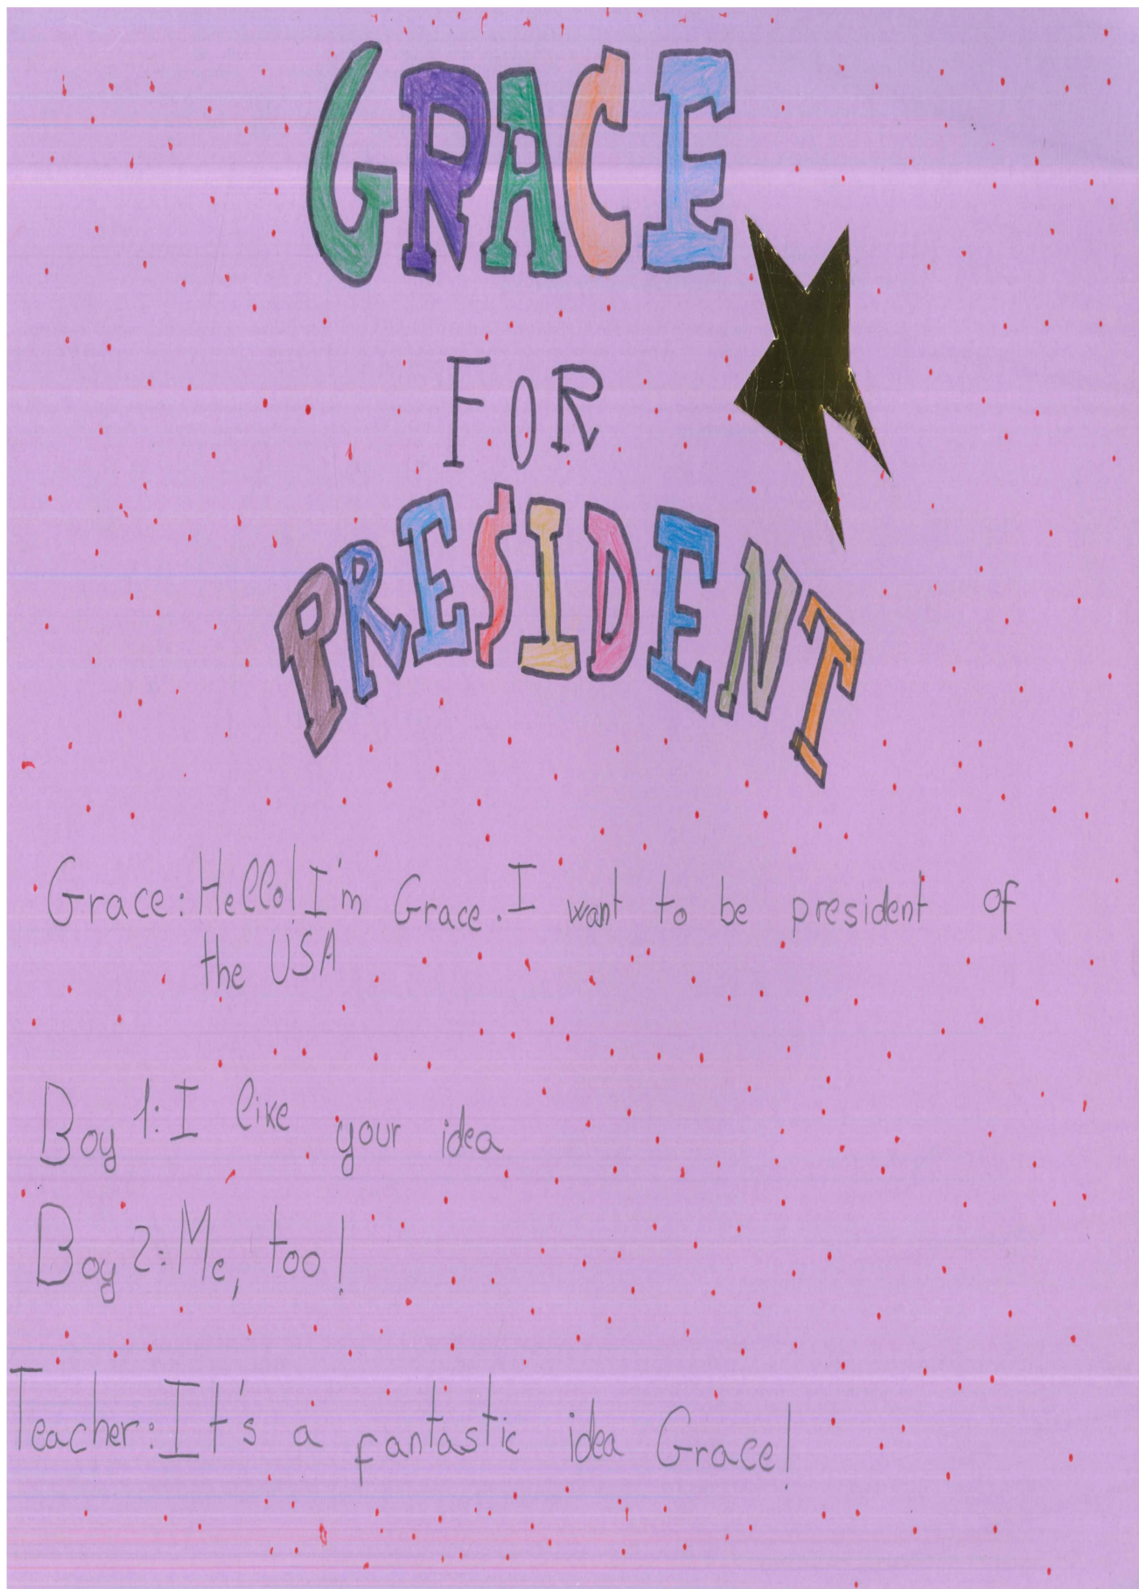 GRACE
FOR
PRESIDENT
Grace: Hello! I'm Grace. I want to be president of
the USA
Boy 1: I like your idea
Boy 2: Me, too!
Teacher: It's a fantastic idea Grace!